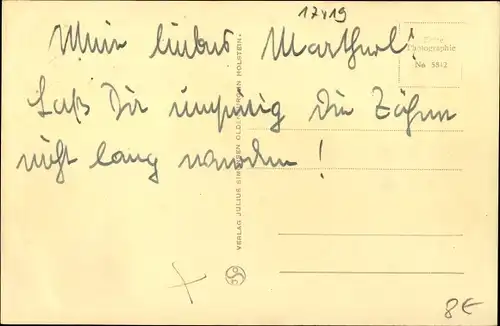 17419
Mein liebes Martherl!
Echte
Photographie
No 5812
Laß Dir                die Zähne
nicht lang werden!
VERLAG JULIUS SIMONSEN OLDENBURG IN HOLSTEIN.
8€